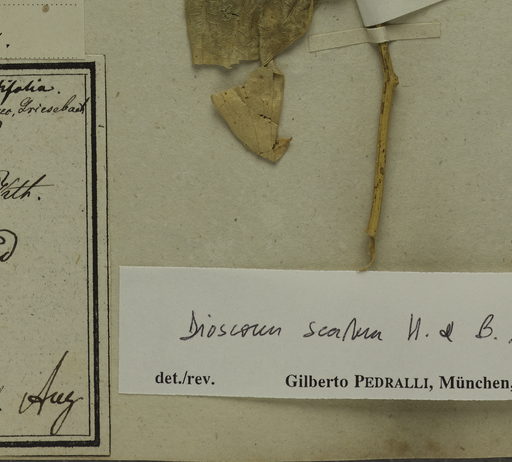 ifolia.
Griesebach
Veth.
Aug
Dioscorea scabra H. & B.
det./rev. Gilberto PEDRALLI, München,